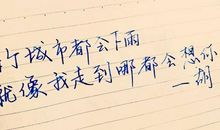 城市都会下雨
就像我走到哪都会想你
一胡